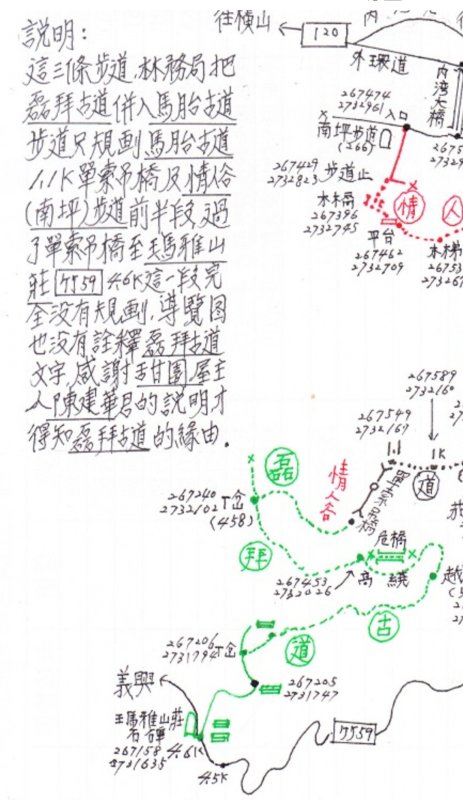 說明:
這三條步道,林務局把
磊拜古道併入馬胎古道
步道只規劃馬胎古道
1.1K單索吊橋及情俗
(南坪)步道前半段,過
了單索吊橋至玉馬雅山
莊 竹59 4.6K這一段完
全没有規劃,導覽图
也没有詮釋磊拜古道
文字,感謝甘園屋主
人陳建華君的說明才
得知磊拜古道的緣由.
往橫山
120
外環道
內湾大橋
267474
2732961
入口
南坪步道
(266)
267429
2732823
步道止
木梯
267396
2732745
平台
267462
2732709
情
人
木梯
267589
2732160
267549
2732167
1.1
1K
道
單索吊橋
情人谷
磊
267240
2732102
T岔
(458)
拜
危橋
高繞
267453
2732026
越
古
道
267206
2731794
T岔
267205
2731747
義興
玉馬雅山莊
石碑
267158
2731635
4.6K
4.5K
竹59